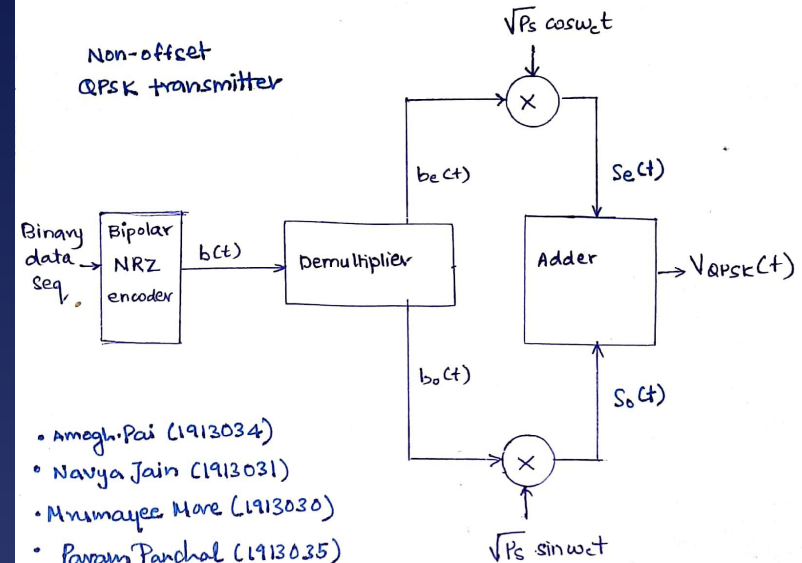 √Ps coswct
Non-offset
QPSK transmitter
×
be(t)
Se(t)
Binary
data
seq.
Bipolar
NRZ
encoder
b(t)
Demultiplier
Adder
VQPSK(t)
bo(t)
So(t)
• Amogh.Pai (1913034)
• Navya Jain (1913031)
• Mrsmayee More (1913030)
• Param Panchal (1913035)
×
√Ps sinwct